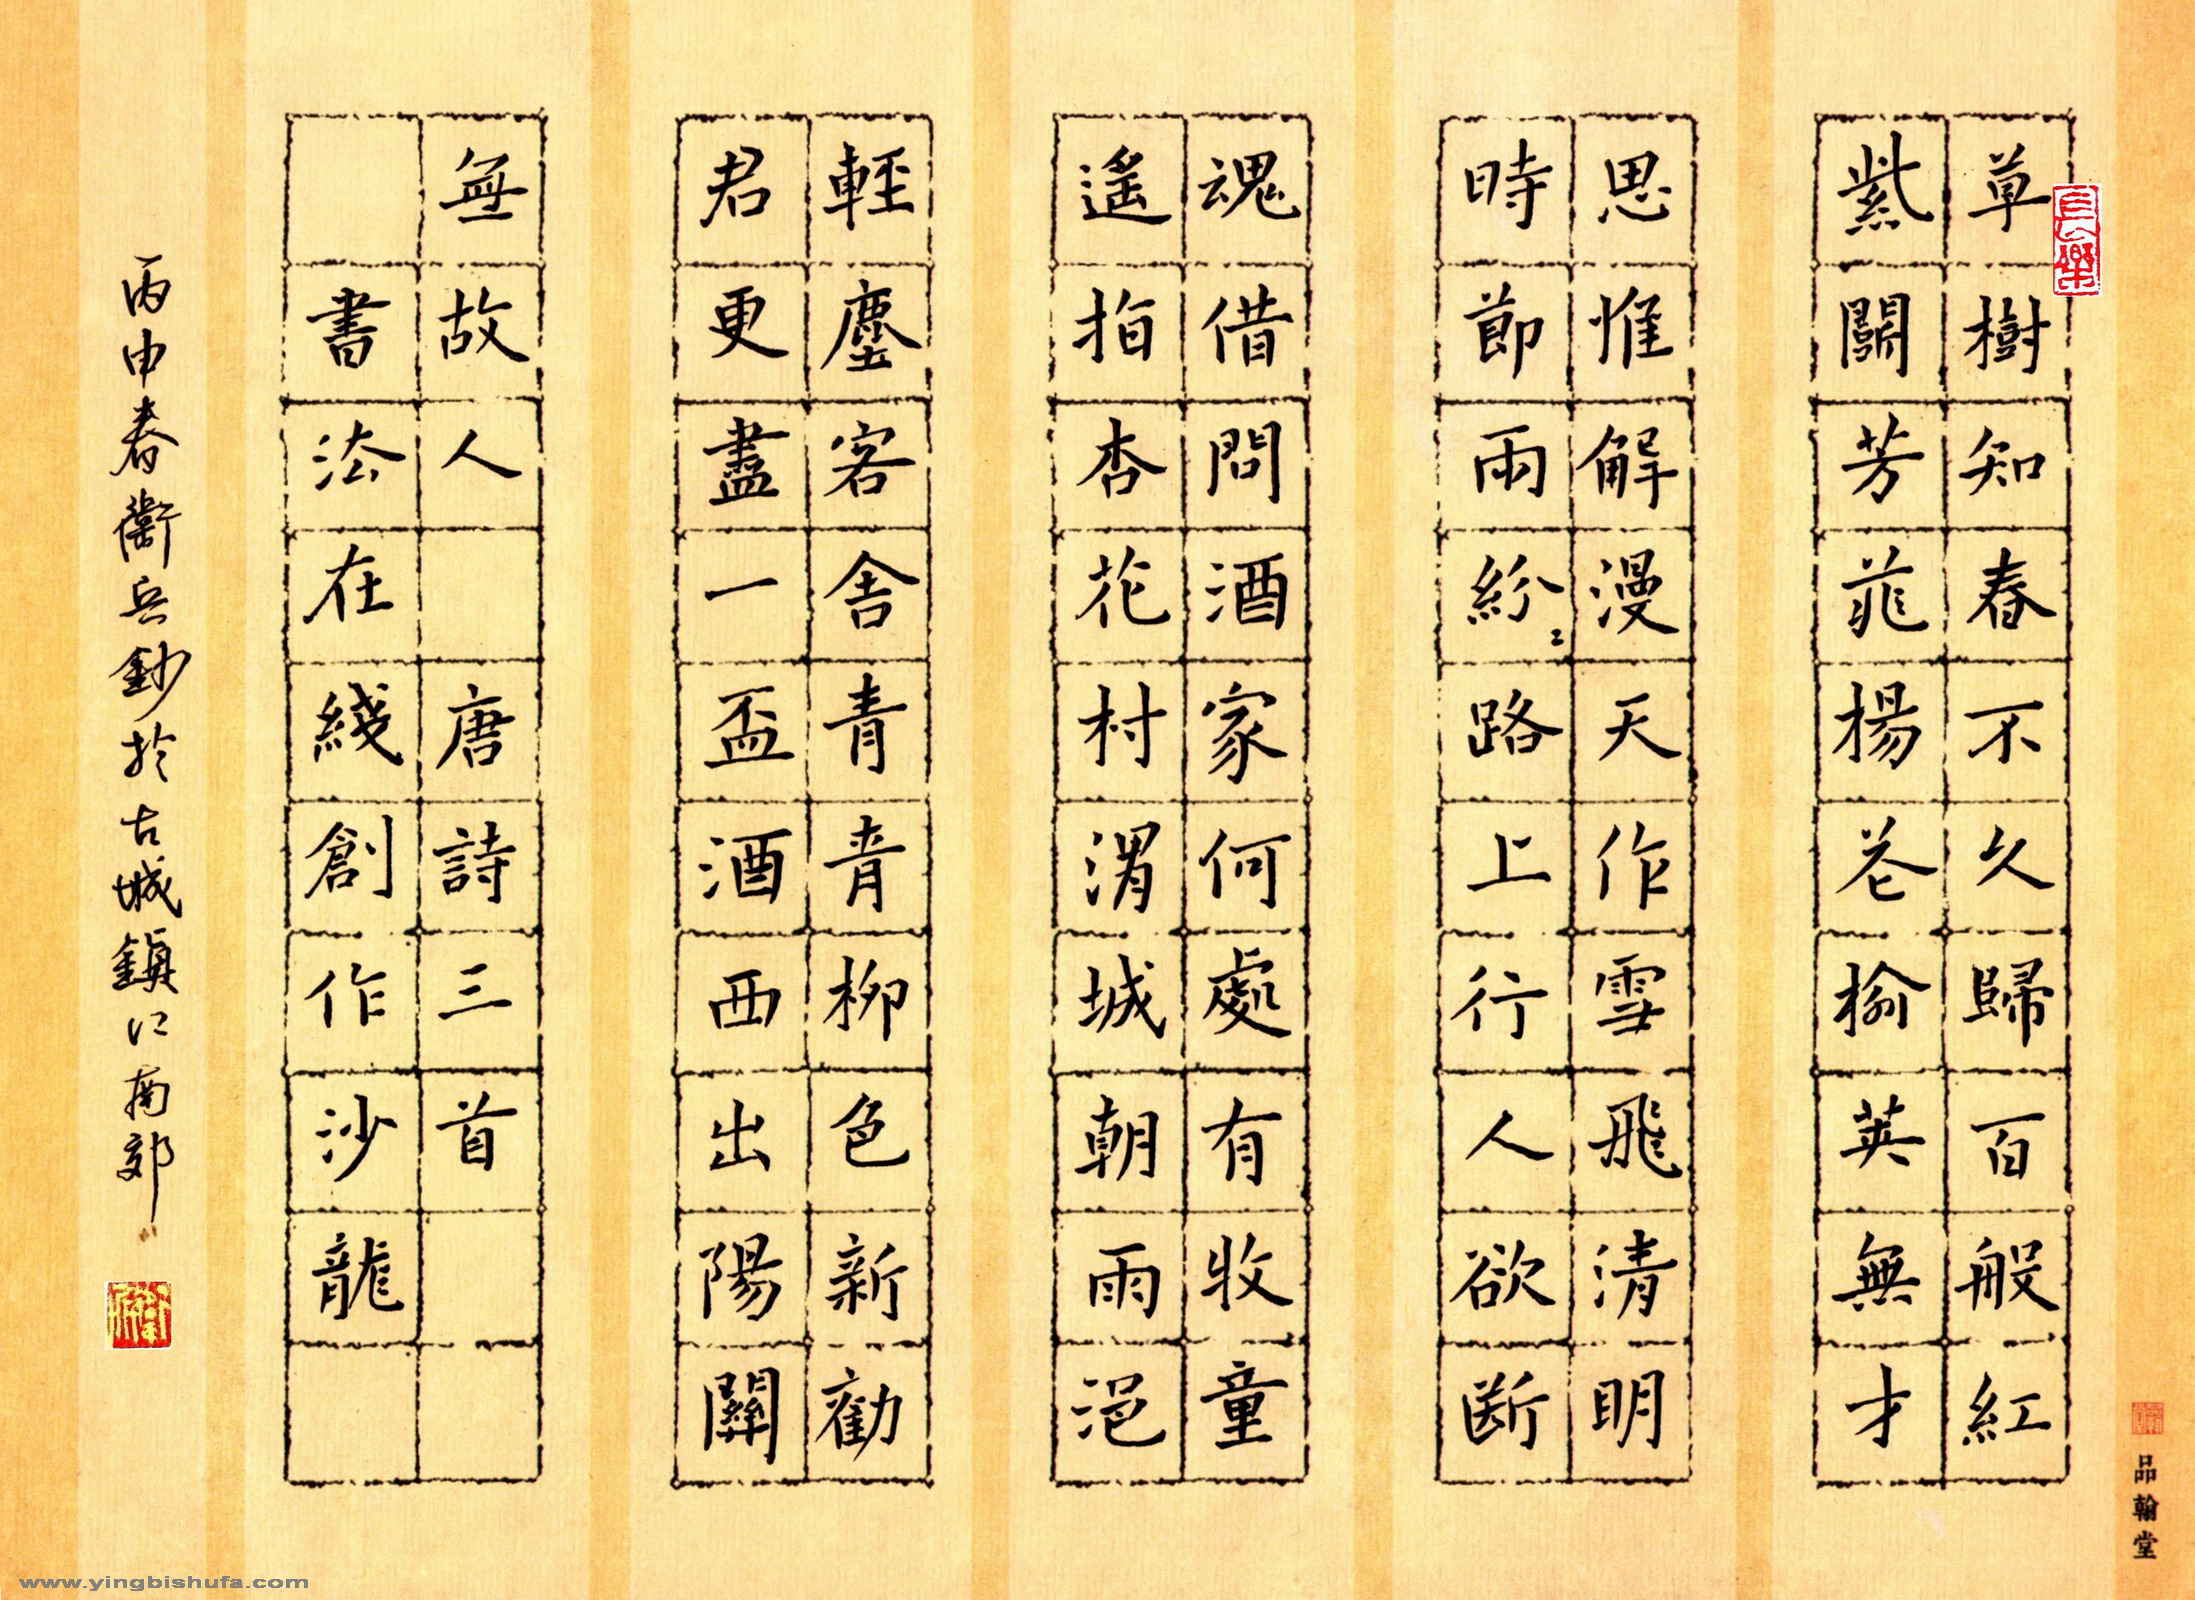 長樂
草樹知春不久歸百般紅
紫鬭芳菲楊花榆莢無才
思惟解漫天作雪飛清明
時節雨紛〻路上行人欲斷
魂借問酒家何處有牧童
遙指杏花村渭城朝雨浥
輕塵客舍青青柳色新勸
君更盡一盃酒西出陽關
無故人 唐詩三首
書法在綫創作沙龍
丙申春衛兵鈔於古城鎮江南郊
品翰堂
www.yingbishufa.com